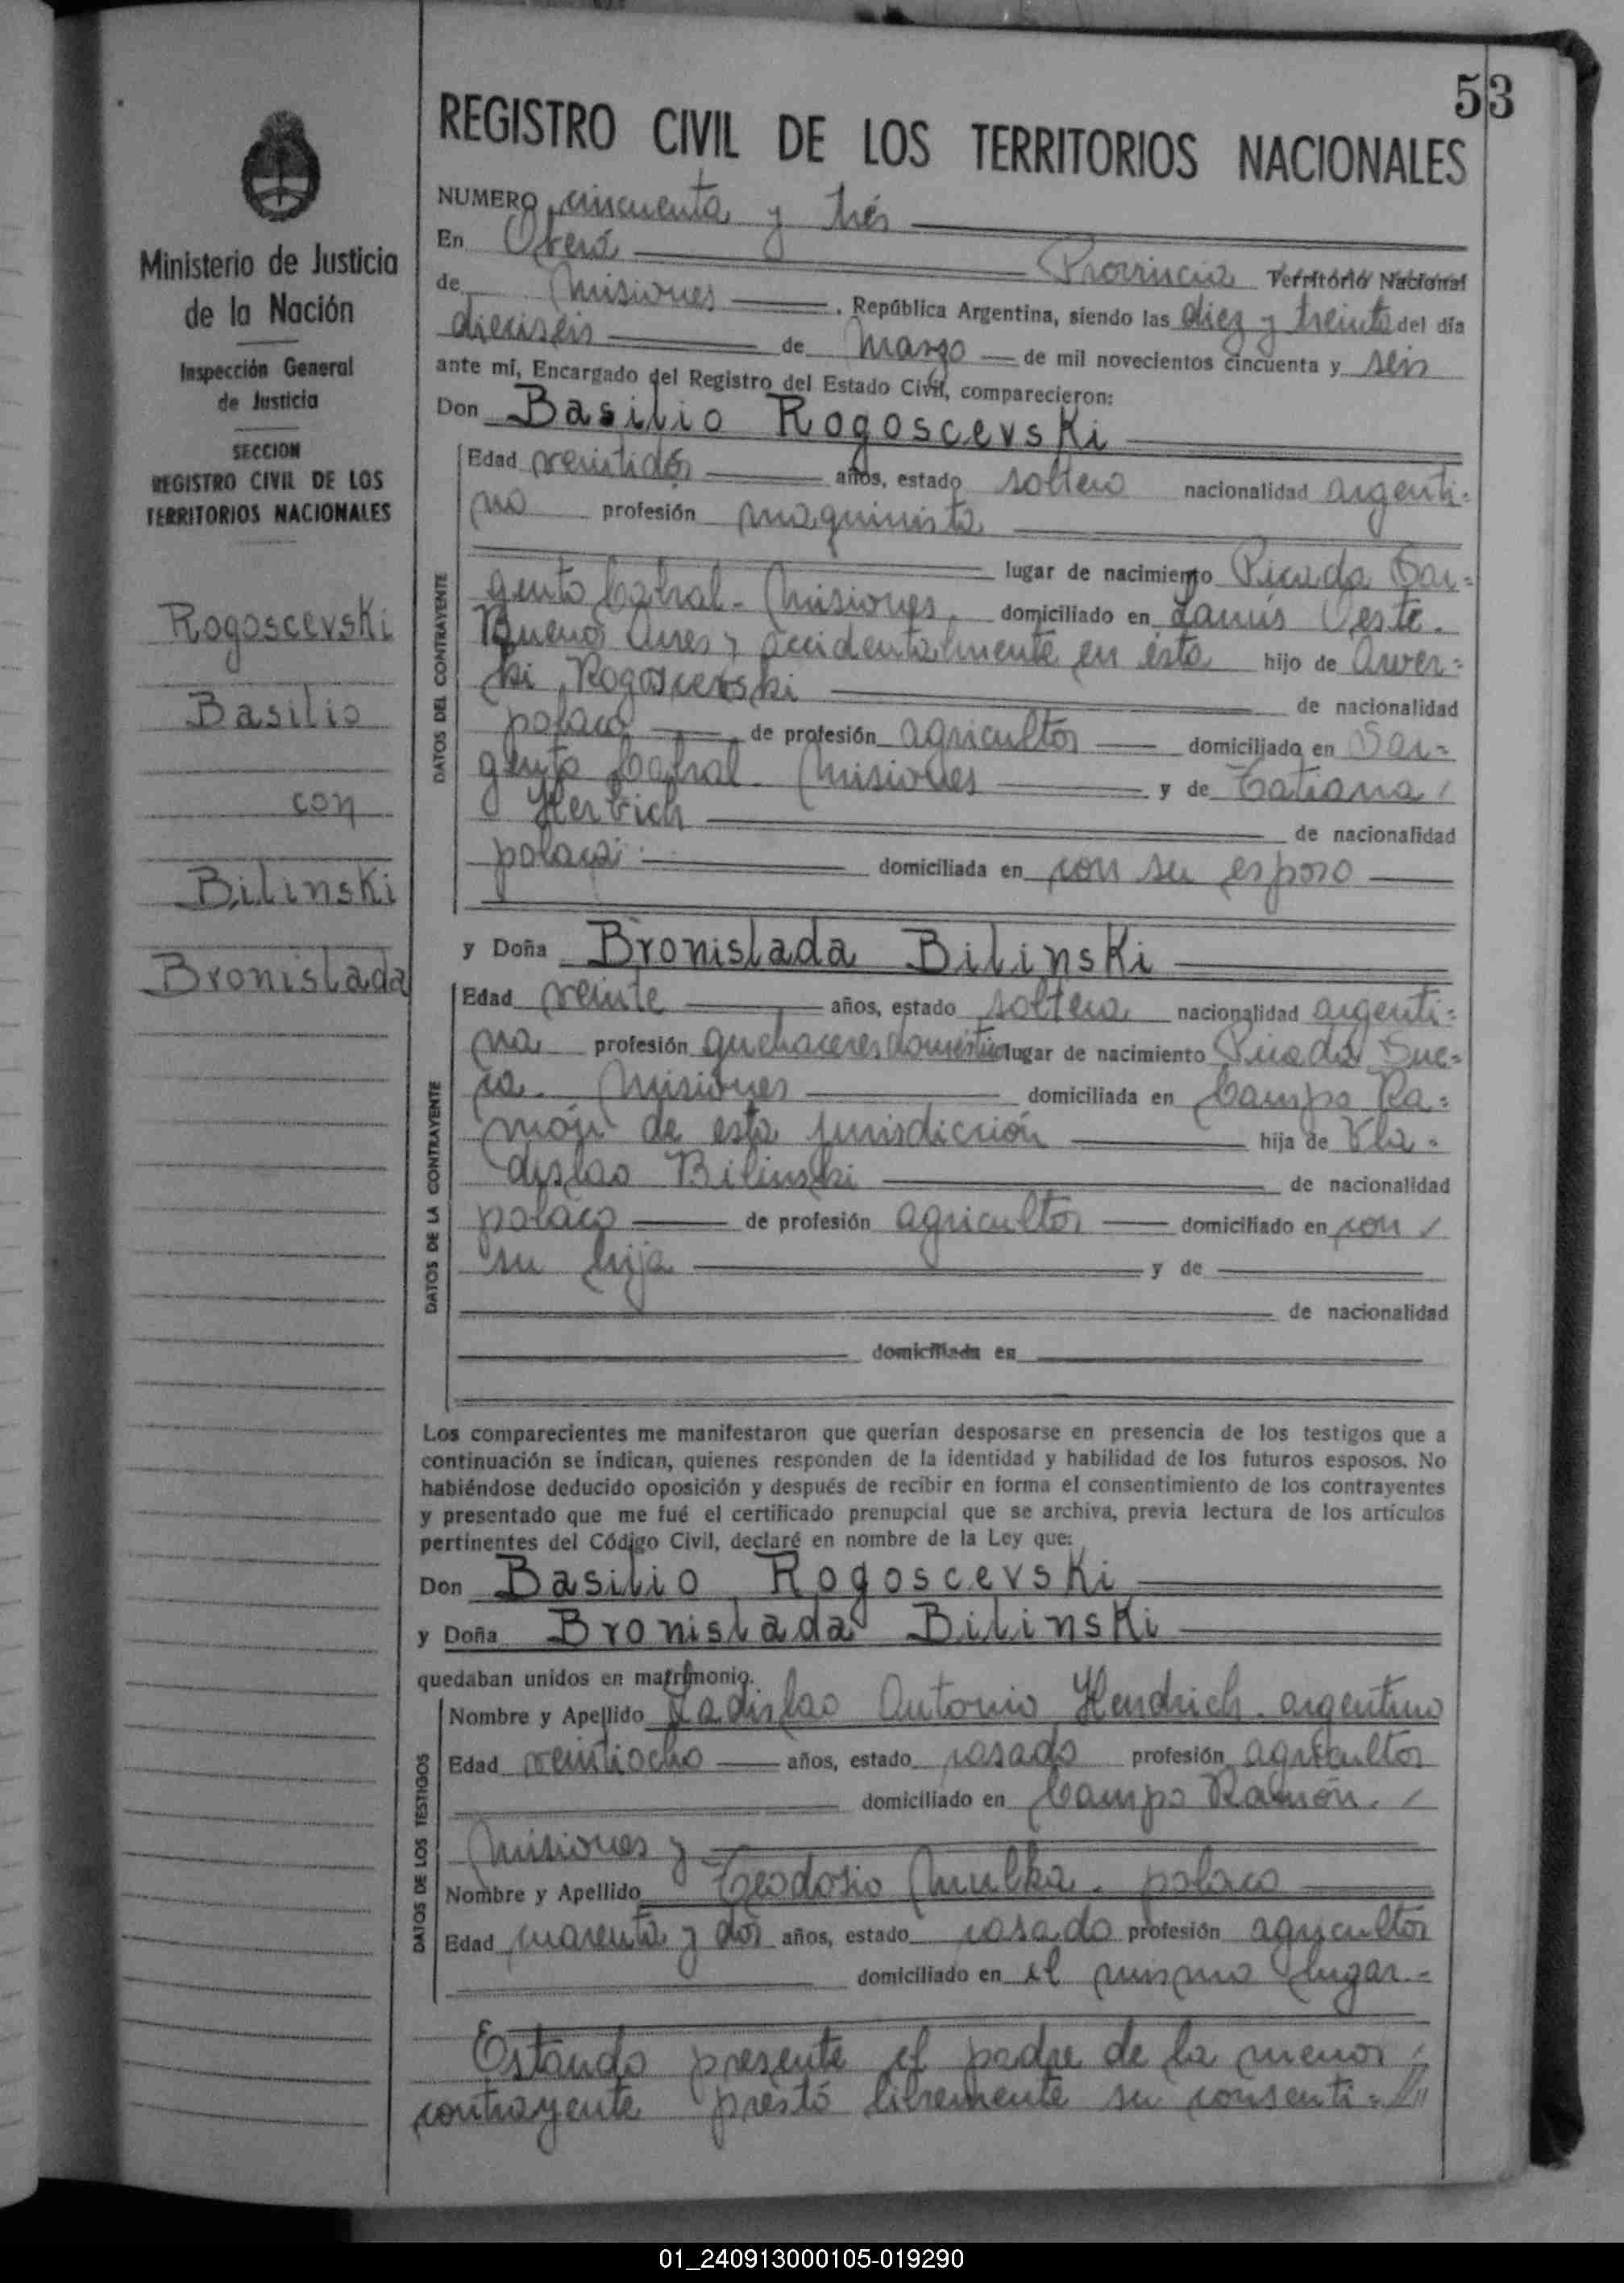 53
REGISTRO CIVIL DE LOS TERRITORIOS NACIONALES
Ministerio de Justicia
de la Nación
Inspección General
de Justicia
SECCION
REGISTRO CIVIL DE LOS
TERRITORIOS NACIONALES
Rogoscevski
Basilio
con
Bilinski
Bronislada
NUMERO cincuenta y trés
En Oberá Provincia Territorio Nacional
de Misiones, República Argentina, siendo las diez y treinta del día
dieciseis de Marzo de mil novecientos cincuenta y seis
ante mí, Encargado del Registro del Estado Civil, comparecieron:
Don Basilio Rogoscevski
DATOS DEL CONTRAYENTE
Edad veintidós años, estado soltero nacionalidad argenti=
no profesión maquinista
lugar de nacimiento Picada Sar=
gento Cabral - Misiones, domiciliado en Lanús Oeste.
Buenos Aires y accidentalmente en ésta hijo de Awer=
ki Rogoscevski de nacionalidad
polaco de profesión agricultor domiciliado en Sar=
gento Cabral - Misiones y de Tatiana /
Herbich de nacionalidad
polaca domiciliada en con su esposo
y Doña Bronislada Bilinski
DATOS DE LA CONTRAYENTE
Edad veinte años, estado soltera nacionalidad argenti=
na profesión quehaceres domésticos lugar de nacimiento Picada Sue=
cia - Misiones domiciliada en Campo Ra=
món de esta jurisdicción hija de Vla=
dislao Bilinski de nacionalidad
polaco de profesión agricultor domiciliado en con /
su hija y de
de nacionalidad
domiciliada en
Los comparecientes me manifestaron que querían desposarse en presencia de los testigos que a
continuación se indican, quienes responden de la identidad y habilidad de los futuros esposos. No
habiéndose deducido oposición y después de recibir en forma el consentimiento de los contrayentes
y presentado que me fué el certificado prenupcial que se archiva, previa lectura de los artículos
pertinentes del Código Civil, declaré en nombre de la Ley que:
Don Basilio Rogoscevski
y Doña Bronislada Bilinski
quedaban unidos en matrimonio.
DATOS DE LOS TESTIGOS
Nombre y Apellido Ladislao Antonio Hendrich - argentino
Edad veintiocho años, estado casado profesión agricultor
domiciliado en Campo Ramón. /
Misiones y
Nombre y Apellido Teodosio Mulka - polaco
Edad cuarenta y dos años, estado casado profesión agricultor
domiciliado en el mismo lugar.-
Estando presente el padre de la menor
contrayente prestó libremente su consenti=//
01_240913000105-019290